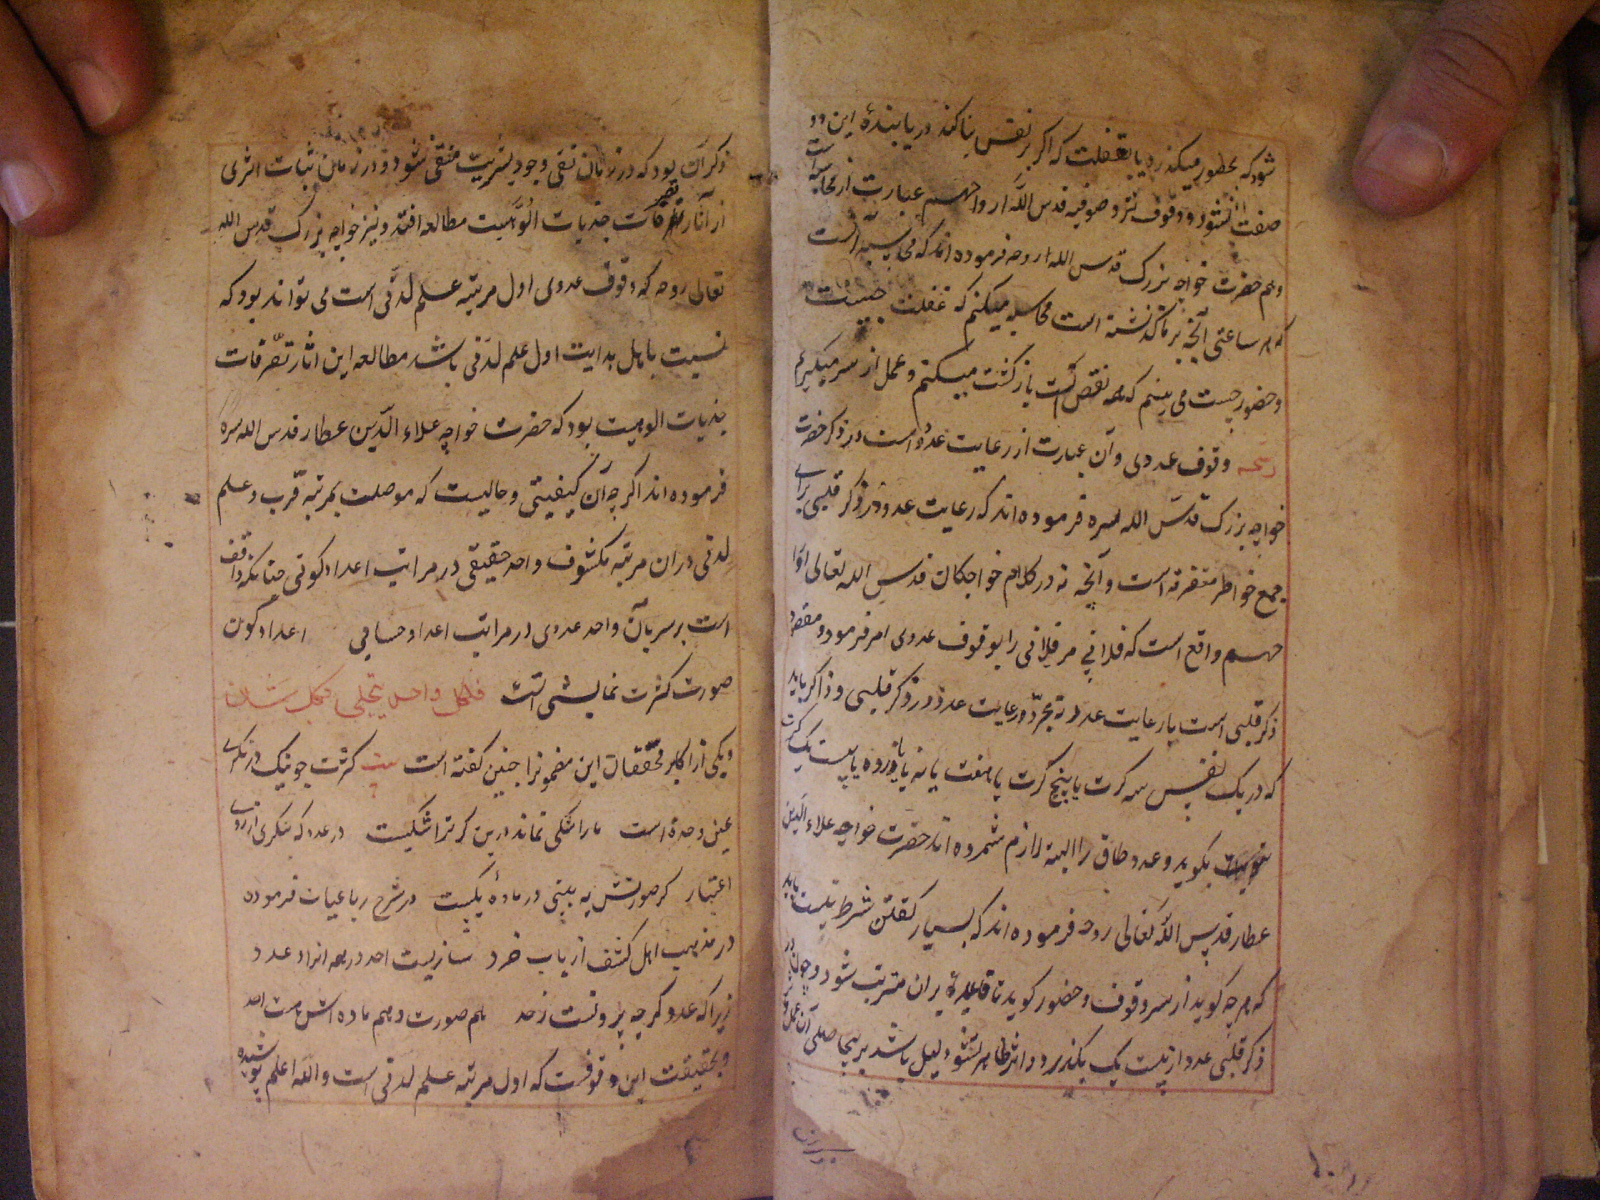 شود که بحضور میگذرد یا بغفلت که اگر بر نفس بنا کند دریابندهٔ این دو
صفت نشود و وقوف نزد صوفیه قدس اللّه ارواحهم عبارت از محاسبه است
و هم حضرت خواجه بزرگ قدس الله روحه فرموده اند که محاسبه آنست
که هر ساعتی آنچه بر ما گذشته است محاسبه میکنم که غفلت چیست
و حضور چیست می بینم که همه نقص است بازگشت میکنم و عمل از سر میگیرم
رشحه وقوف عددی و آن عبارت از رعایت عدد است در ذکر حضرت
خواجه بزرگ قدسّ الله سره فرموده اند که رعایت عدد در ذکر قلبی برای
جمع خواطر متفرقه است و آنچه در کلام خواجکان قدس الله تعالی
واقع است که فلانی مر فلانی را بوقوف عددی امر فرمود و مقصود
ذکر قلبی است با رعایت عدد نه مجرّد رعایت عدد در ذکر قلبی و ذاکر باید
که در یک نفس سه کرت یا پنج کرت یا هفت یا نه یا یازده یا بیست یک کرت
بگوید و عدد طاق را البته لازم شمرده اند حضرت خواجه علاء الدین
عطار قدس اللّه تعالی روحه فرموده اند که بسیار گفتن شرط نیست باید
که هرچه گوید از سر وقوف و حضور گوید تا فایدهٔ بران مترتب شود و چون در
ذکر قلبی عدد از بیست یک بگذرد و اثر ظاهر نشود دلیل باشد بر بیحاصلی آن عمل
ذکر آن بود که در زمان نفی وجود بشریت منفی شود و در زمان اثبات اثری
از آثار تصرفات جذبات الُوهیت مطالعه افتد و نیز خواجه بزرگ قدس الله
تعالی روحه که وقوف عددی اول مرتبه علم لدنّی است می تواند بود که
نسبت باهل بدایت اول علم لدنی باشد مطالعه این اثار تصّرفات
جذبات الوهیت بود که حضرت خواجه علاء الدّین عطار قدس الله سره
فرموده اند اگرچه آن کیفیتی و حالیست که موصلت بمرتبه قرب و علم
لدنی دران مرتبه مکشوف واحد حقیقی در مراتب اعداد کونی چنانکه واقف
است بر سریان واحد عددی در مراتب اعداد حسابی اعداد کون
صورت کثرت نمایشی است فالکل واحد یتجلی بکل شان
و یکی از اکابر محققان این مضمونرا چنین گفته است بیت کثرت چو نیک درنگری
عین وحدة است ما را شکی نماند درین گر ترا شکیست در عدد که بنگری از روی
اعتبار گر صورتش به بینی در مادهٔ یکیست در شرح رباعیات فرموده
در مذهب اهل کشف ارباب خرد ساریست احد در همه افراد عدد
زیرا که عدد گرچه برونست زحد هم صورت و هم ماده اش هست احد
و بحقیقت این وقوفست که اول مرتبه علم لدنی است والله اعلم پوشیده